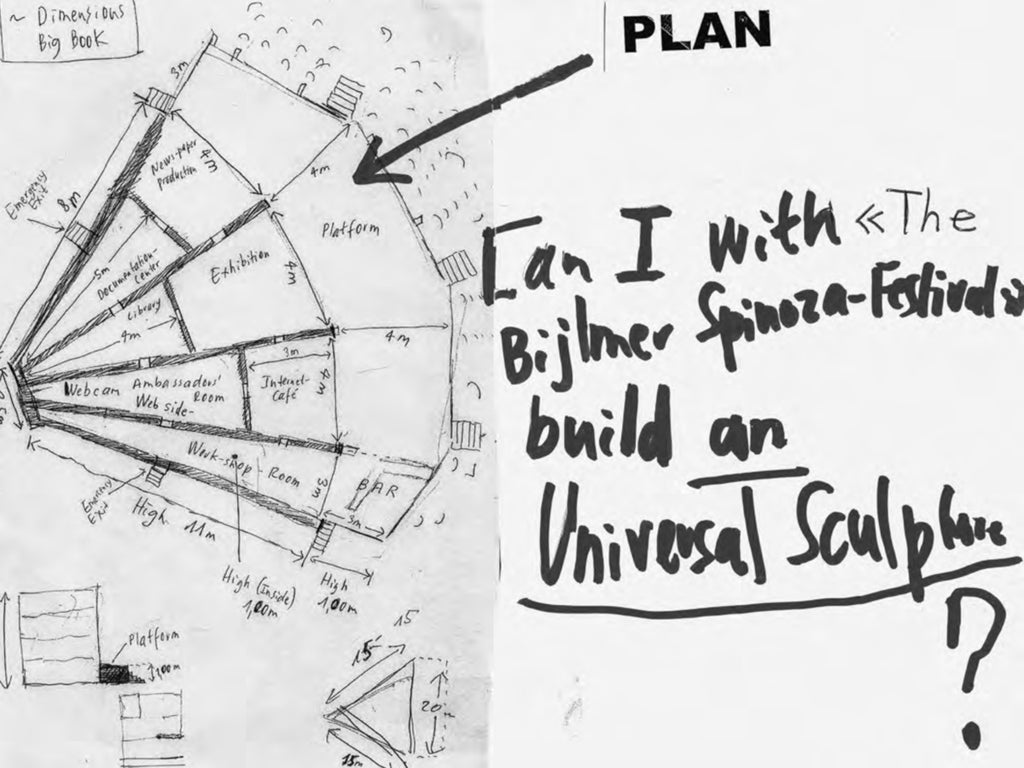 ~ Dimensions
Big Book
PLAN
3m
Newspaper
Production
4m
4m
Emergency
Exit
8m
Platform
5m
Documentation-
Center
Exhibition
4m
Library
4m
4m
3m
4m
Webcam Ambassadors'
Room
Web side-
Internet-
Café
Work-shop-Room
3m
BAR
3m
Emergency
Exit
High
11m
High (inside)
1,00m
High
1,00m
Platform
1,00m
15
15
20
15m
Can I with «The
Bijlmer Spinoza-Festival»
build an
Universal Sculpture
?